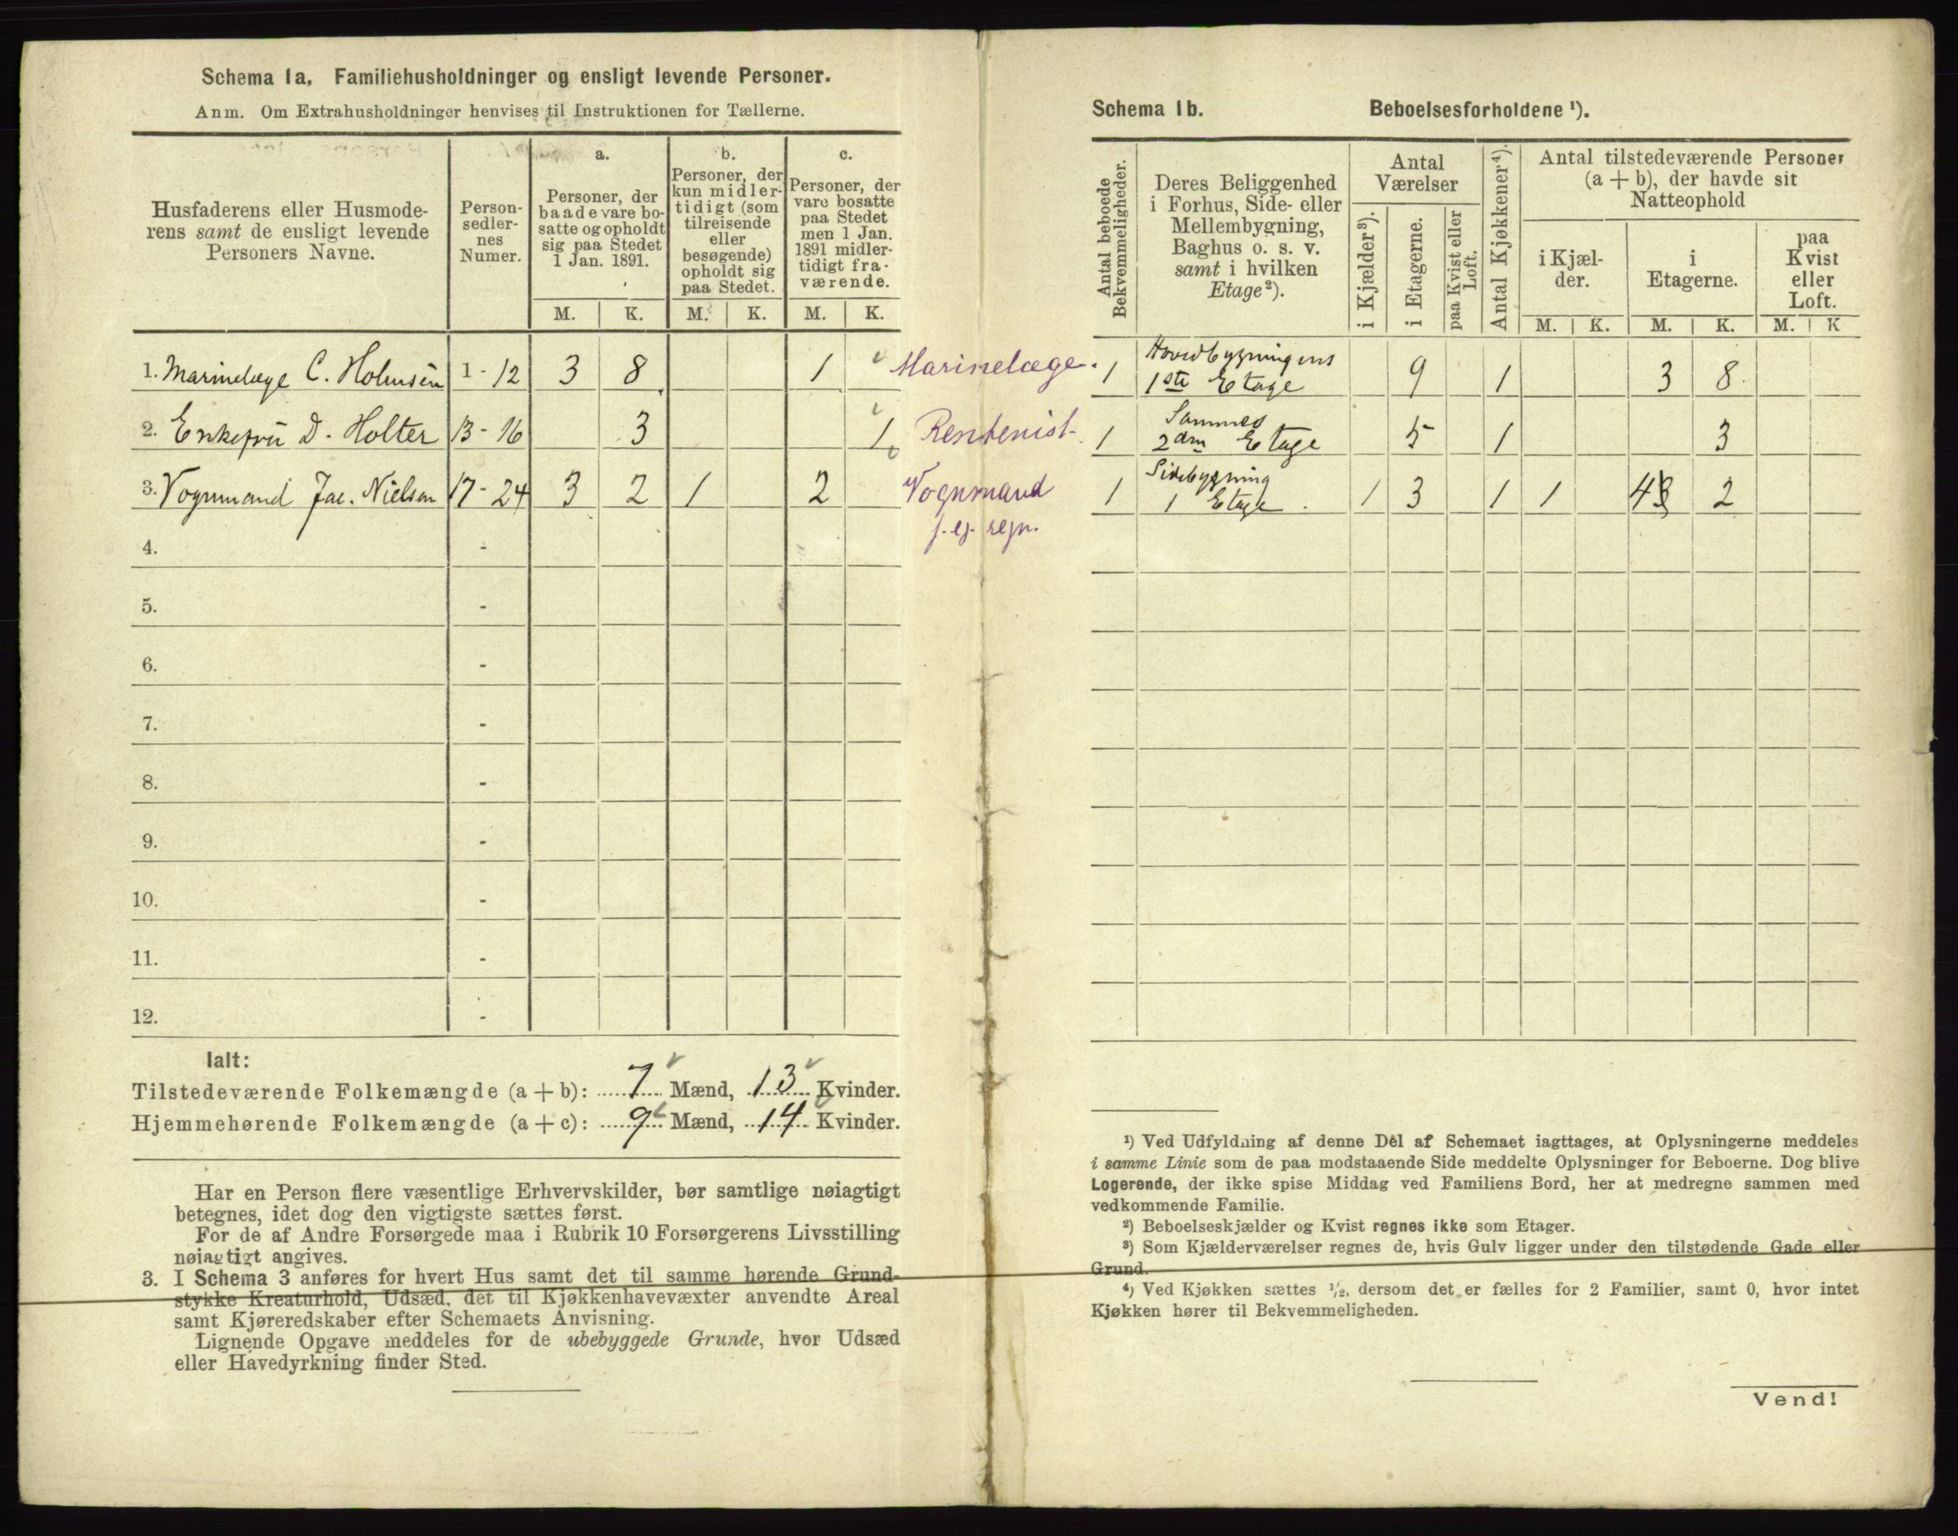 Schema 1a. Familiehusholdninger og ensligt levende Personer.
Anm. Om Extrahusholdninger henvises til Instruktionen for Tællerne.
Husfaderens eller Husmode-
rens samt de ensligt levende
Personers Navne.
Person-
sedler-
nes
Numer.
a.
Personer, der
baade vare bo-
satte og opholdt
sig paa Stedet
1 Jan. 1891.
b.
Personer, der
kun midler-
tidigt (som
tilreisende
eller
besøgende)
opholdt sig
paa Stedet.
c.
Personer, der
vare bosatte
paa Stedet
men 1 Jan.
1891 midler-
tidigt fra-
værende.
M. K. M. K. M. K.
1. Marinelæge C. Holmsen 1 - 12 3 8 1 Marinelæge.
2. Enkefru D. Holter 13 - 16 3 1 Rentenist.
3. Vognmand Jac. Nielsen 17 - 24 3 2 1 2 Vognmand
f. eg. regn.
4. -
5. -
6. -
7. -
8. -
9. -
10. -
11. -
12. -
Ialt:
Tilstedeværende Folkemængde (a + b): 7 Mænd, 13 Kvinder.
Hjemmehørende Folkemængde (a + c): 9 Mænd, 14 Kvinder.
Har en Person flere væsentlige Erhvervskilder, bør samtlige nøiagtigt
betegnes, idet dog den vigtigste sættes først.
For de af Andre Forsørgede maa i Rubrik 10 Forsørgerens Livsstilling
nøiagtigt angives.
3. I Schema 3 anføres for hvert Hus samt det til samme hørende Grund-
stykke Kreaturhold, Udsæd, det til Kjøkkenhavevæxter anvendte Areal
samt Kjøreredskaber efter Schemaets Anvisning.
Lignende Opgave meddeles for de ubebyggede Grunde, hvor Udsæd
eller Havedyrkning finder Sted.
Schema 1b. Beboelsesforholdene ¹).
Antal beboede
Bekvemmeligheder.
Deres Beliggenhed
i Forhus, Side- eller
Mellembygning,
Baghus o. s. v.
samt i hvilken
Etage²).
Antal
Værelser
i Kjælder³).
i Etagerne.
paa Kvist eller
Loft.
Antal Kjøkkener⁴).
Antal tilstedeværende Personer
(a + b), der havde sit
Natteophold
i Kjæl-
der.
i
Etagerne.
paa
Kvist
eller
Loft.
M. K. M. K. M. K
1 Hovedbygningens
1ste Etage 9 1 3 8
1 Sammes
2den Etage 5 1 3
1 Sidebygning
1 Etage. 1 3 1 1 3 2
¹) Ved Udfyldning af denne Del af Schemaet iagttages, at Oplysningerne meddeles
i samme Linie som de paa modstaaende Side meddelte Oplysninger for Beboerne. Dog blive
Logerende, der ikke spise Middag ved Familiens Bord, her at medregne sammen med
vedkommende Familie.
²) Beboelseskjælder og Kvist regnes ikke som Etager.
³) Som Kjælderværelser regnes de, hvis Gulv ligger under den tilstødende Gade eller
Grund.
⁴) Ved Kjøkken sættes ½, dersom det er fælles for 2 Familier, samt 0, hvor intet
Kjøkken hører til Bekvemmeligheden.
Vend!